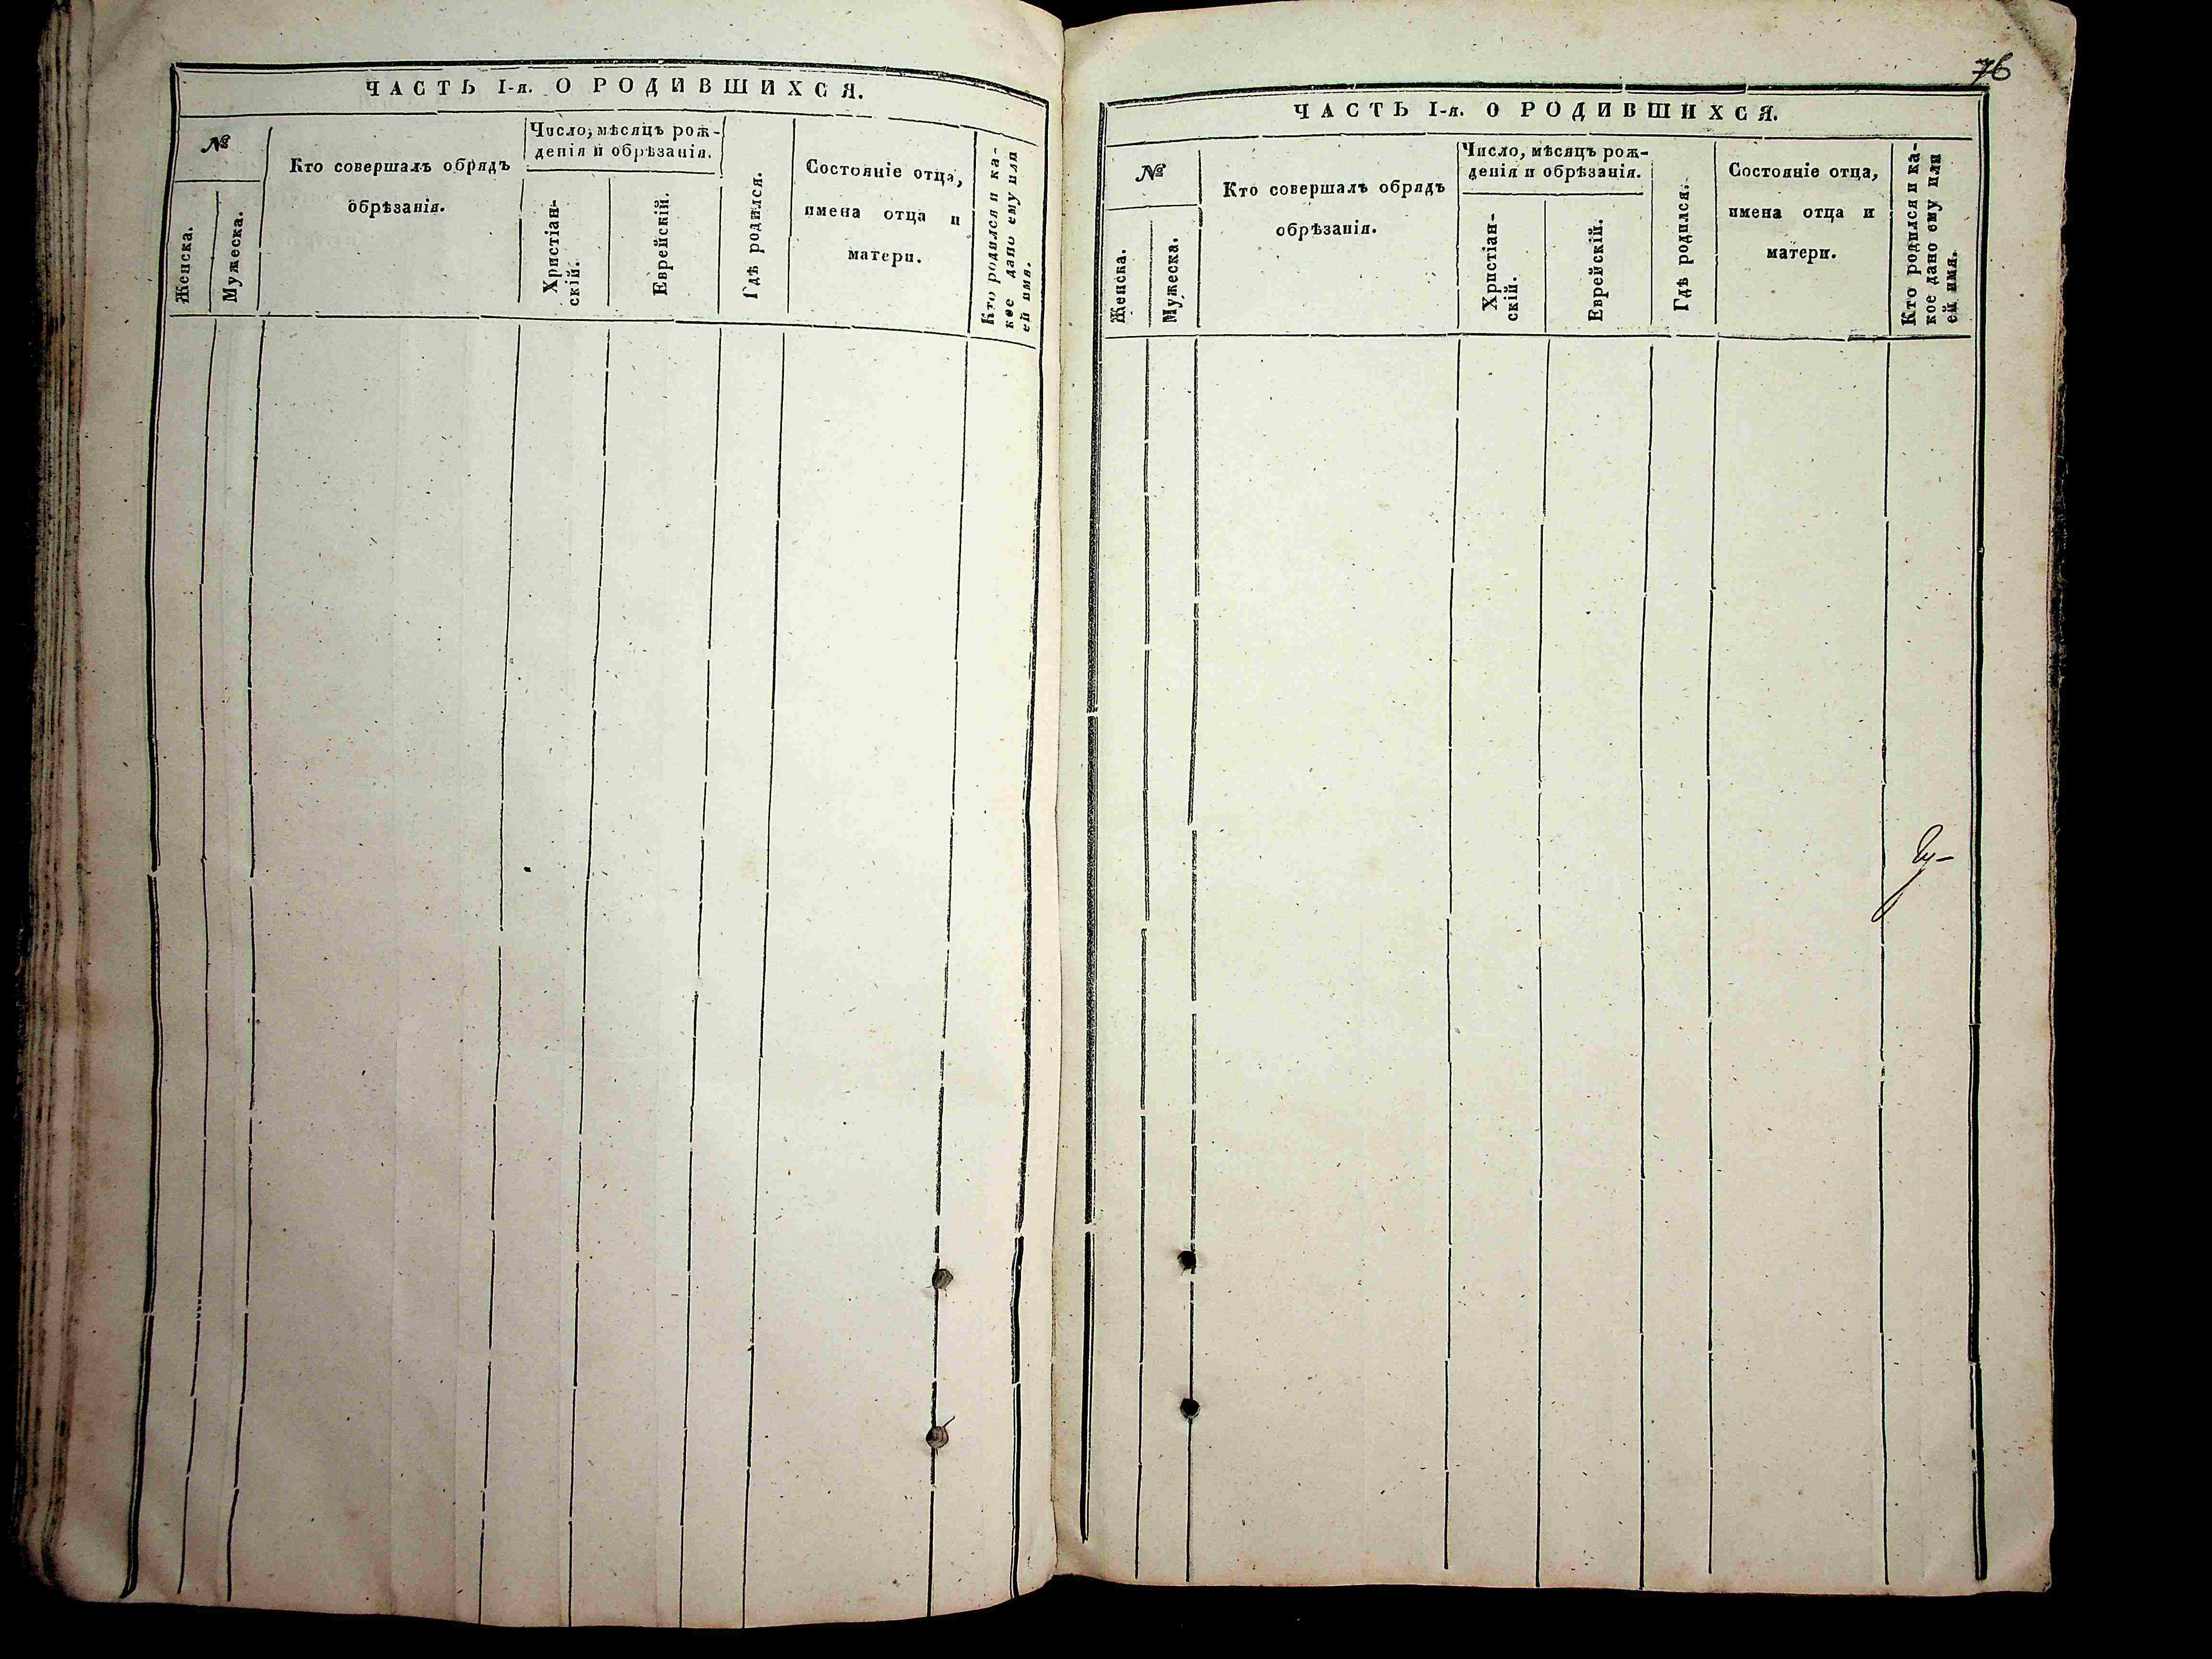 ЧАСТЬ I-я. О РОДИВШИХСЯ.
№
Женска.
Мужеска.
Кто совершалъ обрядъ
обрѣзанія.
Число, мѣсяцъ рож-
денія и обрѣзанія.
Христіан-
скій.
Еврейскій.
Гдѣ родился.
Состояніе отца,
имена отца и
матери.
Кто родился и ка-
кое дано ему или
ей имя.
76
ЧАСТЬ I-я. О РОДИВШИХСЯ.
№
Женска.
Мужеска.
Кто совершалъ обрядъ
обрѣзанія.
Число, мѣсяцъ рож-
денія и обрѣзанія.
Христіан-
скій.
Еврейскій.
Гдѣ родился.
Состояніе отца,
имена отца и
матери.
Кто родился и ка-
кое дано ему или
ей имя.